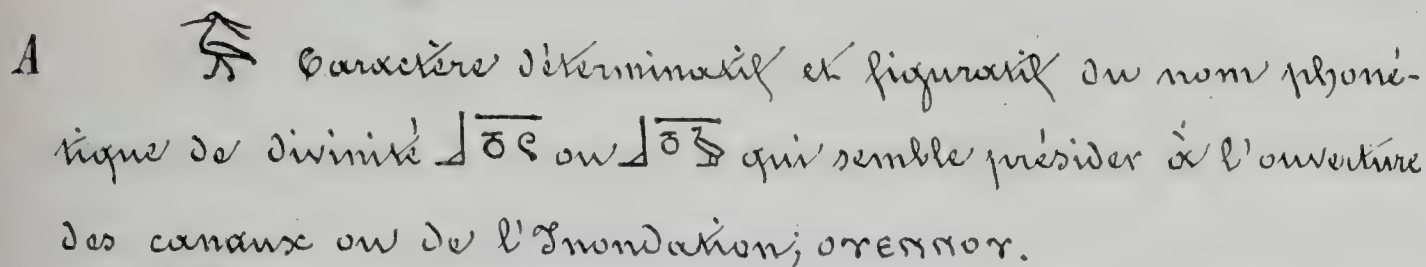 A Caractère déterminatif et figuratif du nom phoné-
tique de divinité ou qui semble présider à l'ouverture
des canaux ou de l'Inondation; ⲟⲩⲉⲛⲛⲟⲩ.